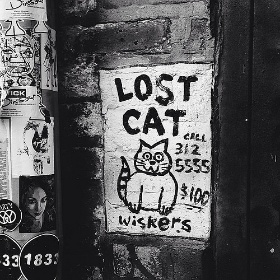 LOST
CAT
CALL
312
5555
$100
wiskers
ICK
33
1833